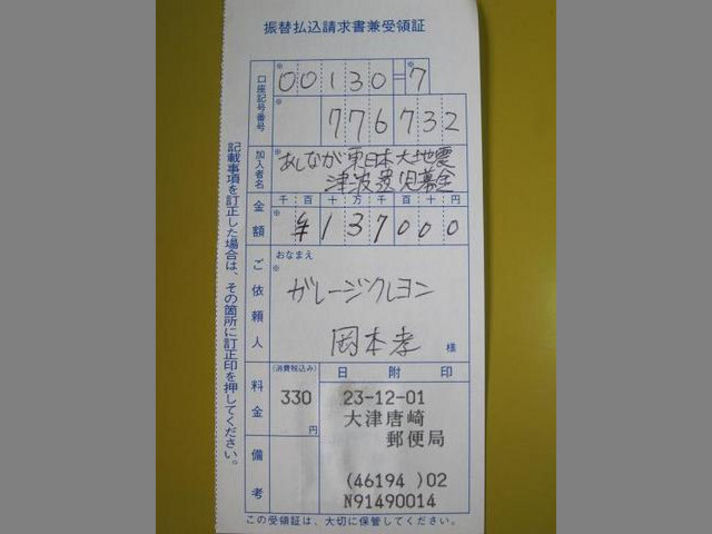 振替払込請求書兼受領証
口座記号番号
※00130=※7
※776732
加入者名
※あしなが東日本大地震
津波遺児募金
金額
千百十万千百十円
※¥137000
ご依頼人
おなまえ
※
ガレージクレヨン
岡本孝 様
料金
(消費税込み)
330
円
日附印
23-12-01
大津唐崎
郵便局
(46194 )02
N91490014
備考
この受領証は、大切に保管してください。
記載事項を訂正した場合は、その箇所に訂正印を押してください。